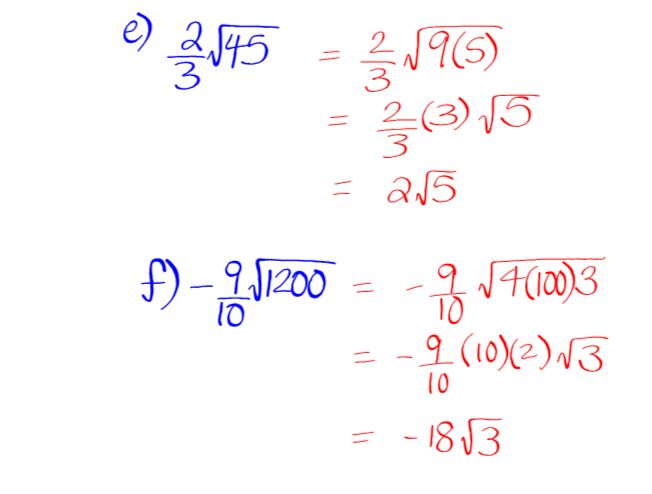 e) 2/3 √45 = 2/3 √9(5)
= 2/3 (3) √5
= 2√5
f) - 9/10 √1200 = - 9/10 √4(100)3
= - 9/10 (10)(2) √3
= -18√3